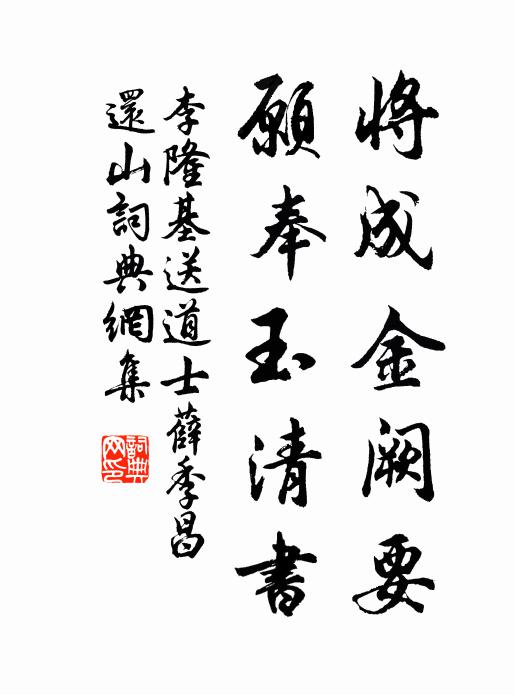 將成金闕要
願奉玉清書
李隆基送道士薛季昌
還山詞典網集
詞典
网印